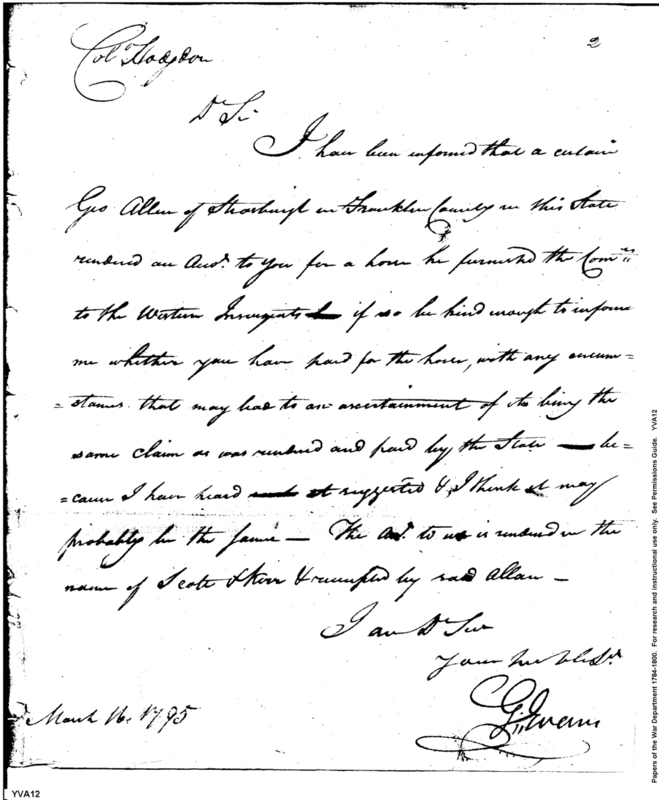 2
Col. Hodgdon
Dr Sir
I have been informed that a certain
Geo Allen of Strasburgh in Franklin County in this State
rendered an Acct. to you for a horse he furnished the Comrs.
to the Western Insurgents if so be kind enough to inform
me whether you have paid for the horse, with any circum=
=stances that may lead to an ascertainment of its being the
same claim as was rendered and paid by the State — be=
=cause I have heard it suggested & I think it may
probably be the same — The Act. to us is rendered in the
name of Scott & Kerr & receipted by said Allen —
I am Dr Sir
Your Hble Sr.
March 16. 1795
YVA12
Papers of the War Department 1784-1800. For research and instructional use only. See Permissions Guide. YVA12